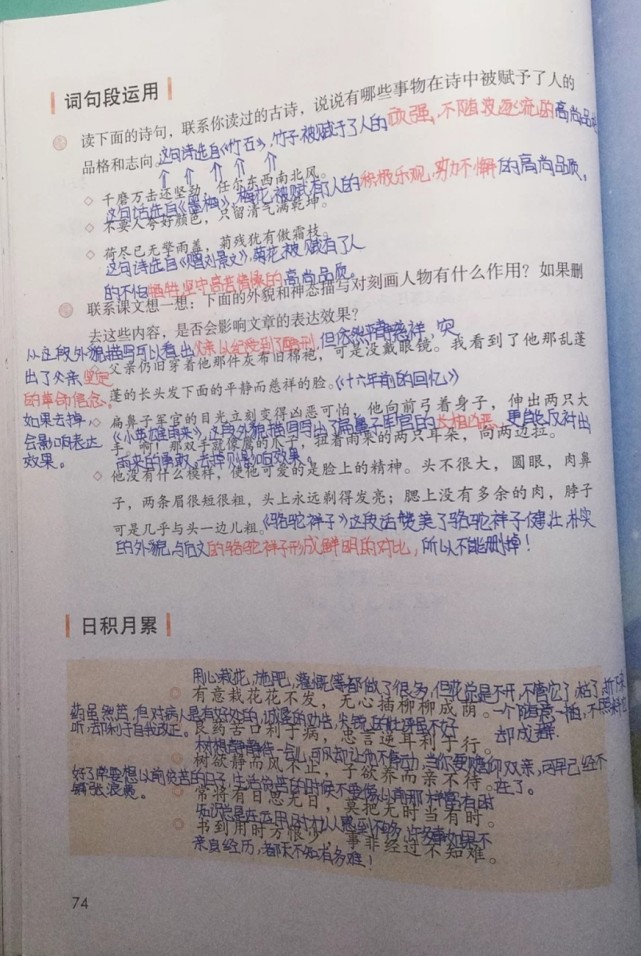 词句段运用
读下面的诗句，联系你读过的古诗，说说有哪些事物在诗中被赋予了人的
品格和志向。这句诗选自《竹石》，竹子被赋予了人的顽强、不随波逐流的高尚品格
千磨万击还坚劲，任尔东西南北风。
这句诗选自《墨梅》，梅花被赋有了人的积极乐观，努力不懈的高尚品质。
不要人夸好颜色，只留清气满乾坤。
荷尽已无擎雨盖，菊残犹有傲霜枝。
这句诗选自《赠刘景文》，菊花被赋有了人
的不怕牺牲坚守高告情操的高尚品质。
联系课文想一想：下面的外貌和神态描写对刻画人物有什么作用？如果删
去这些内容，是否会影响文章的表达效果？
从这段外貌描写可以看出父亲以经受到了酷刑，但依然平静慈祥，突
出了父亲坚定
的革命信念。
如果去掉，
会影响表达
效果。
父亲仍旧穿着他那件灰布旧棉袍，可是没戴眼镜。我看到了他那乱蓬
蓬的长头发下面的平静而慈祥的脸。《十六年前的回忆》
扁鼻子军官的目光立刻变得凶恶可怕，他向前弓着身子，伸出两只大
《小英雄雨来》，这段外貌描写写出了扁鼻子军官的长相凶恶，更能反衬出
手。啊！那双手就像鹰的爪子，扭着雨来的两只耳朵，向两边拉。
雨来的勇敢，去掉则影响效果。
他没有什么模样，使他可爱的是脸上的精神。头不很大，圆眼，肉鼻
子，两条眉很短很粗，头上永远剃得发亮；腮上没有多余的肉，脖子
可是几乎与头一边儿粗。《骆驼祥子》这段话赞美了骆驼祥子健壮朴实
的外貌，与后文的骆驼祥子形成鲜明的对比，所以不能删掉！
日积月累
用心栽花，施肥，灌溉等都做了很多，但花总是不开，不管它了
有意栽花花不发，无心插柳柳成荫。
药虽然苦，但对病人是有好处的，
听，却利于自我改正。
却成荫
良药苦口利于病，忠言逆耳利于行。
树想静静待一会儿，可风却让他不停动，当你要赡仰双亲，两早已经不
在了。
树欲静而风不止，子欲养而亲不待。
好了常要想以前贫苦的日子，
铺张浪费。
常将有日思无日，莫把无时当有时。
知识总是在运用时才让人感到不够，许多事如果不
书到用时方恨少，事非经过不知难。
亲自经历，都不知有多难！
74